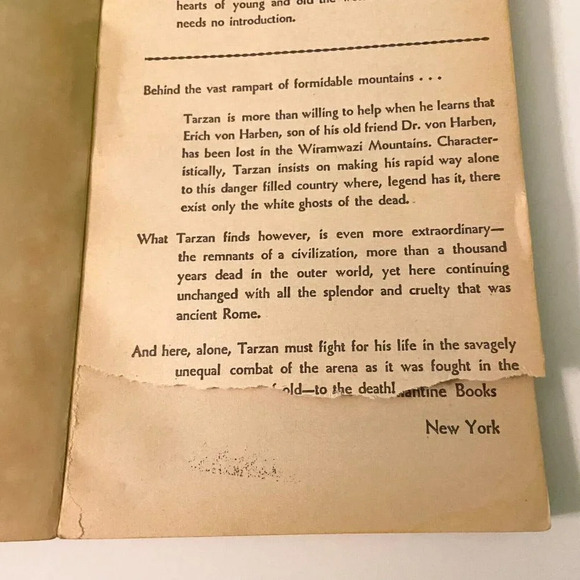 hearts of young and old the
needs no introduction.
Behind the vast rampart of formidable mountains . . .
Tarzan is more than willing to help when he learns that
Erich von Harben, son of his old friend Dr. von Harben,
has been lost in the Wiramwazi Mountains. Character-
istically, Tarzan insists on making his rapid way alone
to this danger filled country where, legend has it, there
exist only the white ghosts of the dead.
What Tarzan finds however, is even more extraordinary—
the remnants of a civilization, more than a thousand
years dead in the outer world, yet here continuing
unchanged with all the splendor and cruelty that was
ancient Rome.
And here, alone, Tarzan must fight for his life in the savagely
unequal combat of the arena as it was fought in the
old—to the death!
Books
New York